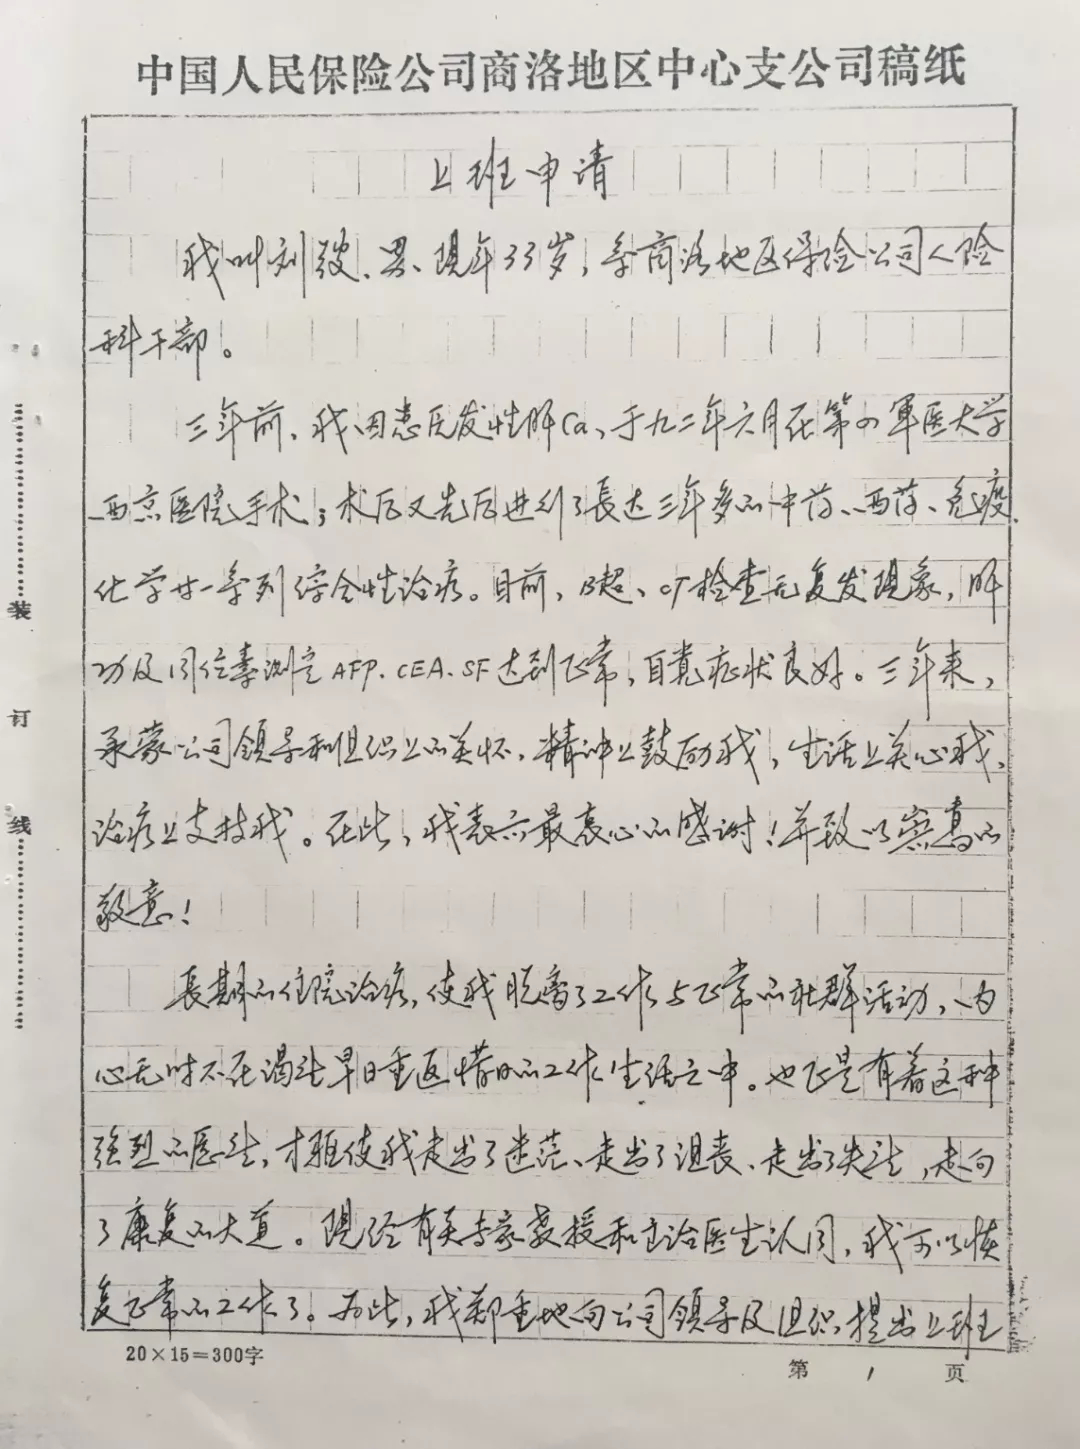 中国人民保险公司商洛地区中心支公司稿纸
上班申请
我叫刘 、男、现年33岁，系商洛地区保险公司人险
科干部。
三年前，我因患原发性肝Ca、于九二年六月在第四軍医大学
西京医院手术；术后又先后进行了長达三年多的中药、西药、免疫
化学等一系列综合性治疗。目前，B超、CT检查无复发现象，肝
功及同位素测定AFP.CEA.SF达到正常，自觉症状良好。三年来，
承蒙公司领导和组织上的关怀，精神上鼓励我，生活上关心我，
治疗上支持我。在此，我表示最衷心的感谢！并致以崇高的
敬意！
長期的住院治疗，使我脱离了工作与正常的社群活动，内
心无时不在渴望早日重返惜日的工作生活之中。也正是有着这种
强烈的愿望，才驱使我走出了迷茫、走出了沮丧、走出了失望，走向
了康复的大道。现经有关专家教授和主治医生认同，我可以恢
复正常的工作了。为此，我郑重地向公司领导及组织提出上班
20×15=300字
第 1 页
装
订
线